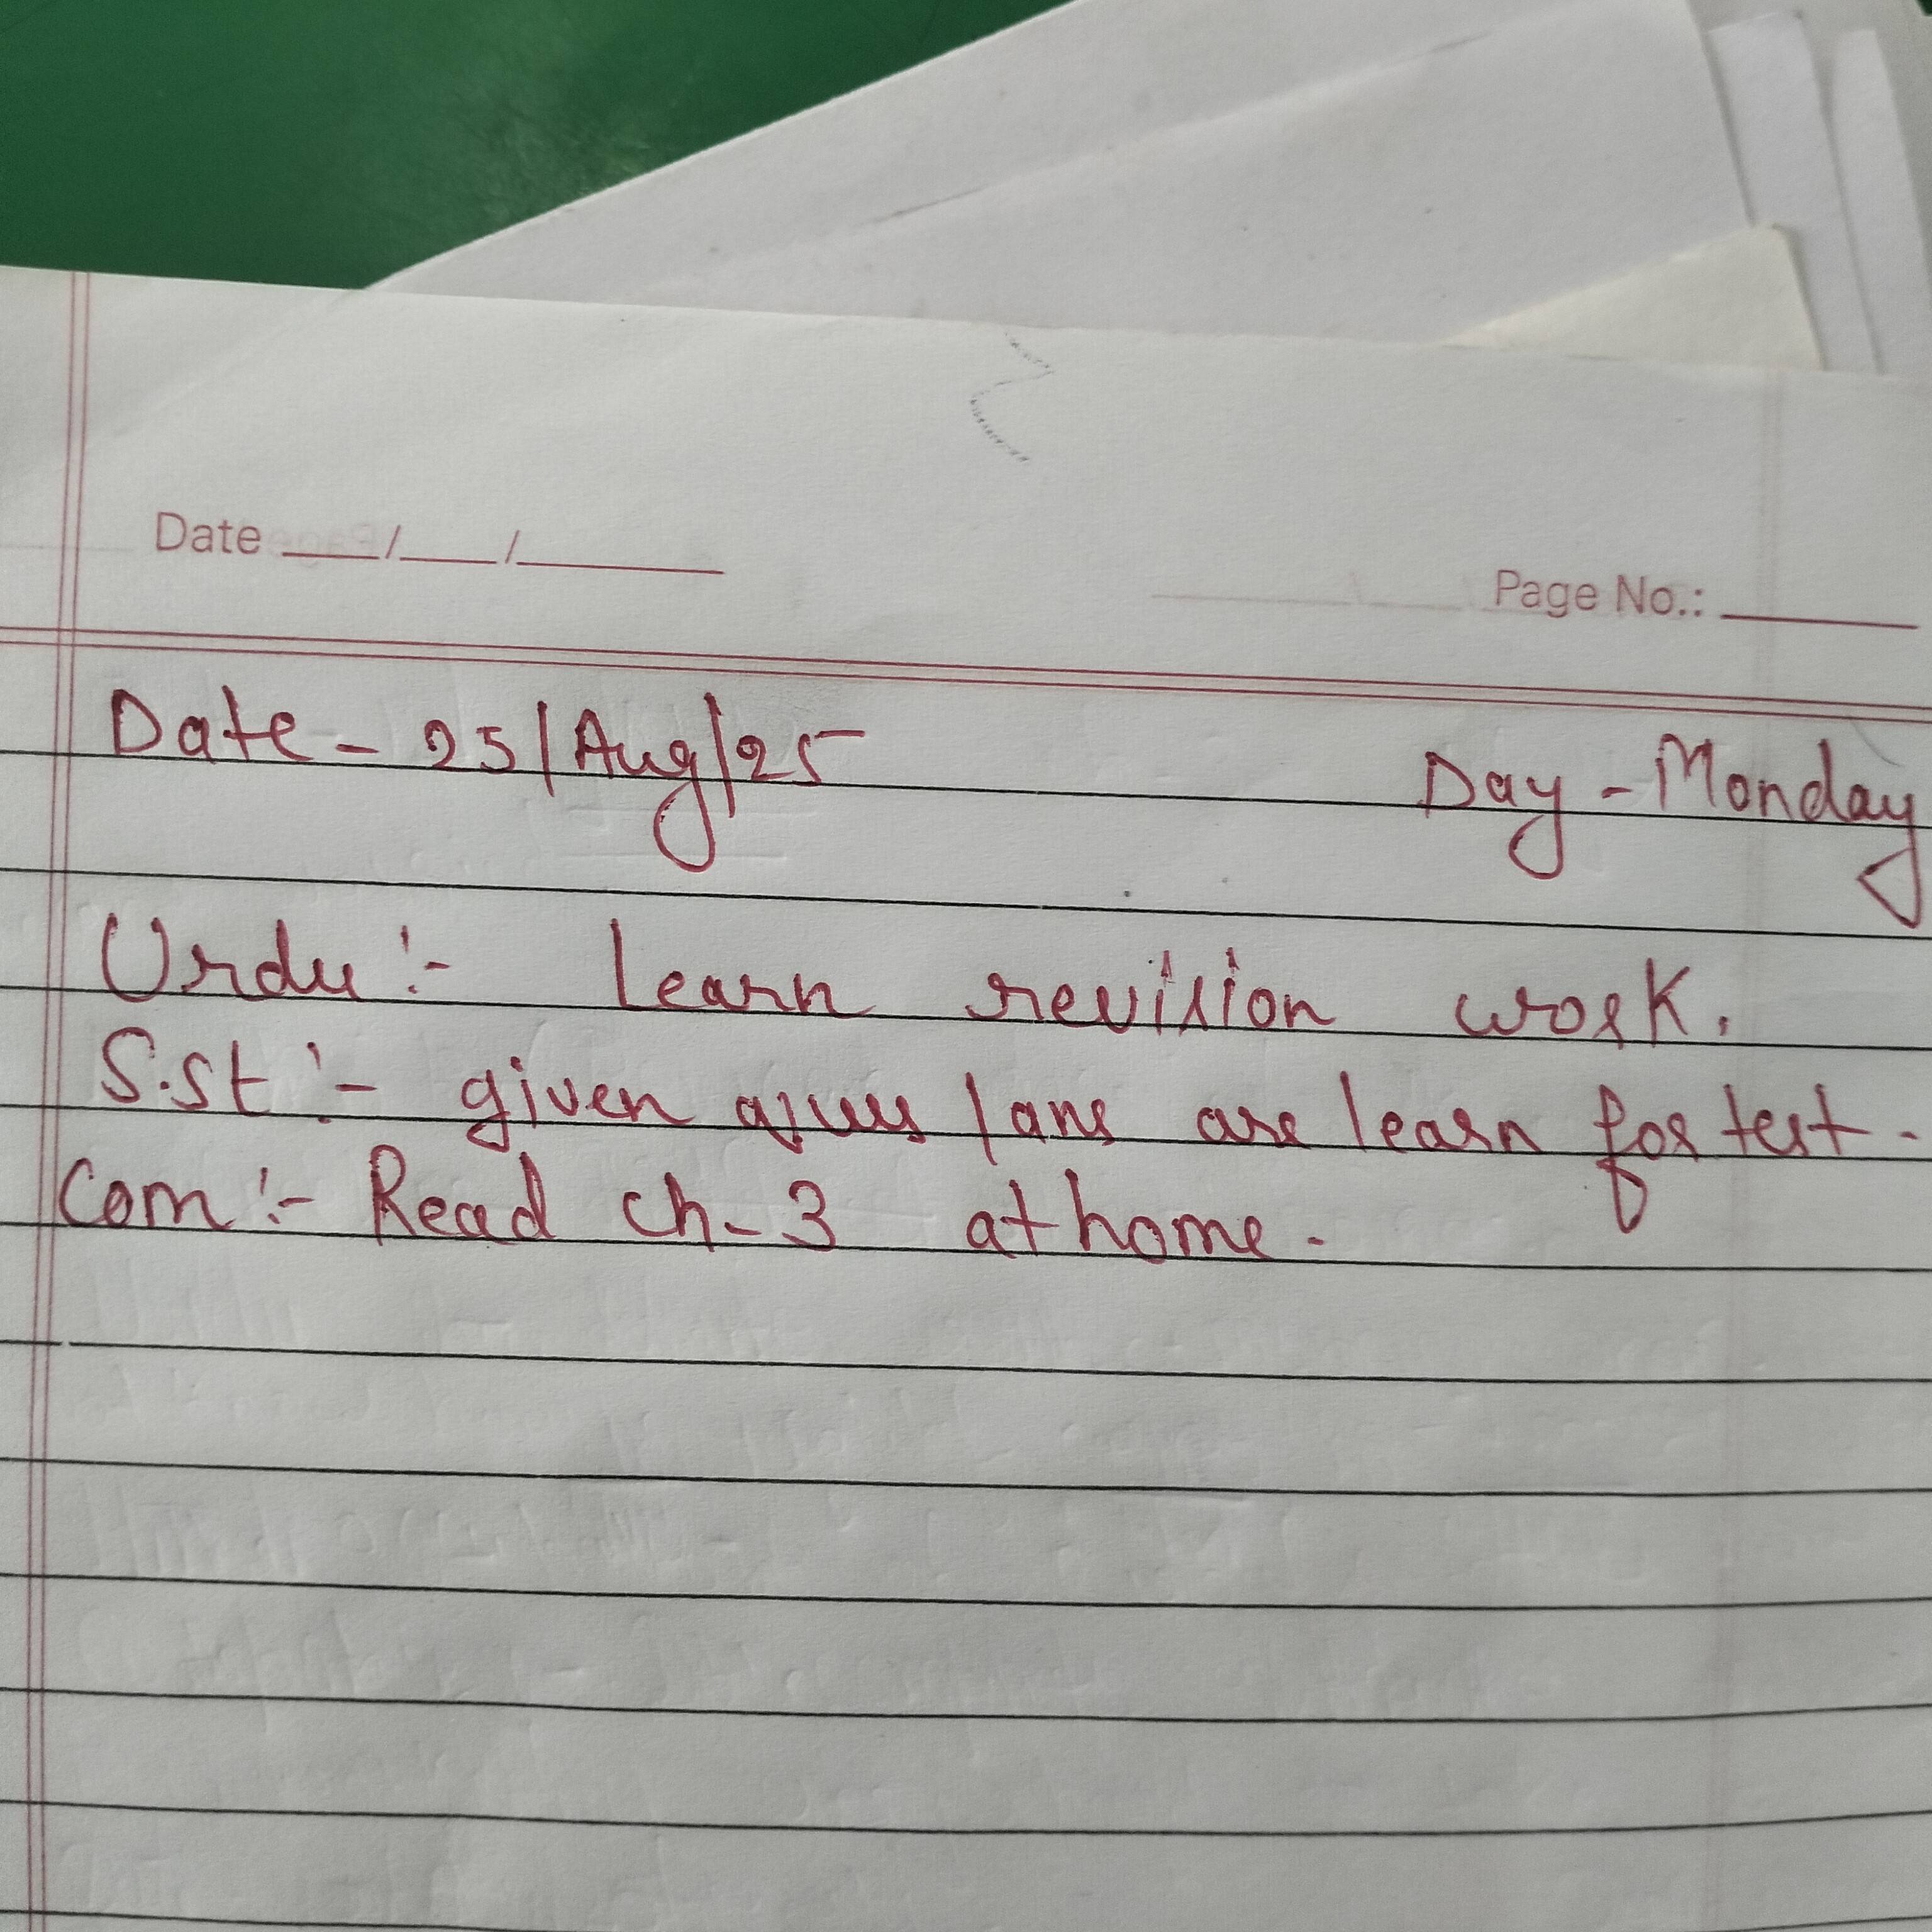 Date ____/____/________
Page No.: ________
Date - 25/Aug/25 Day - Monday
Urdu :- learn revision work.
S.st :- given / ans are learn for test.
Com :- Read ch-3 at home.